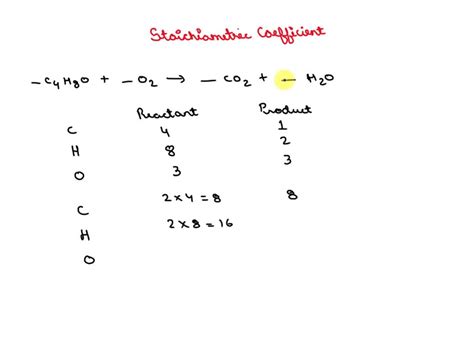 Stoichiametric Coefficient
_ C4H8O + _ O2 → _ CO2 + _ H2O
Reactant Product
C 4 1
H 8 2
O 3 3
C 2×4=8 8
H 2×8=16
O